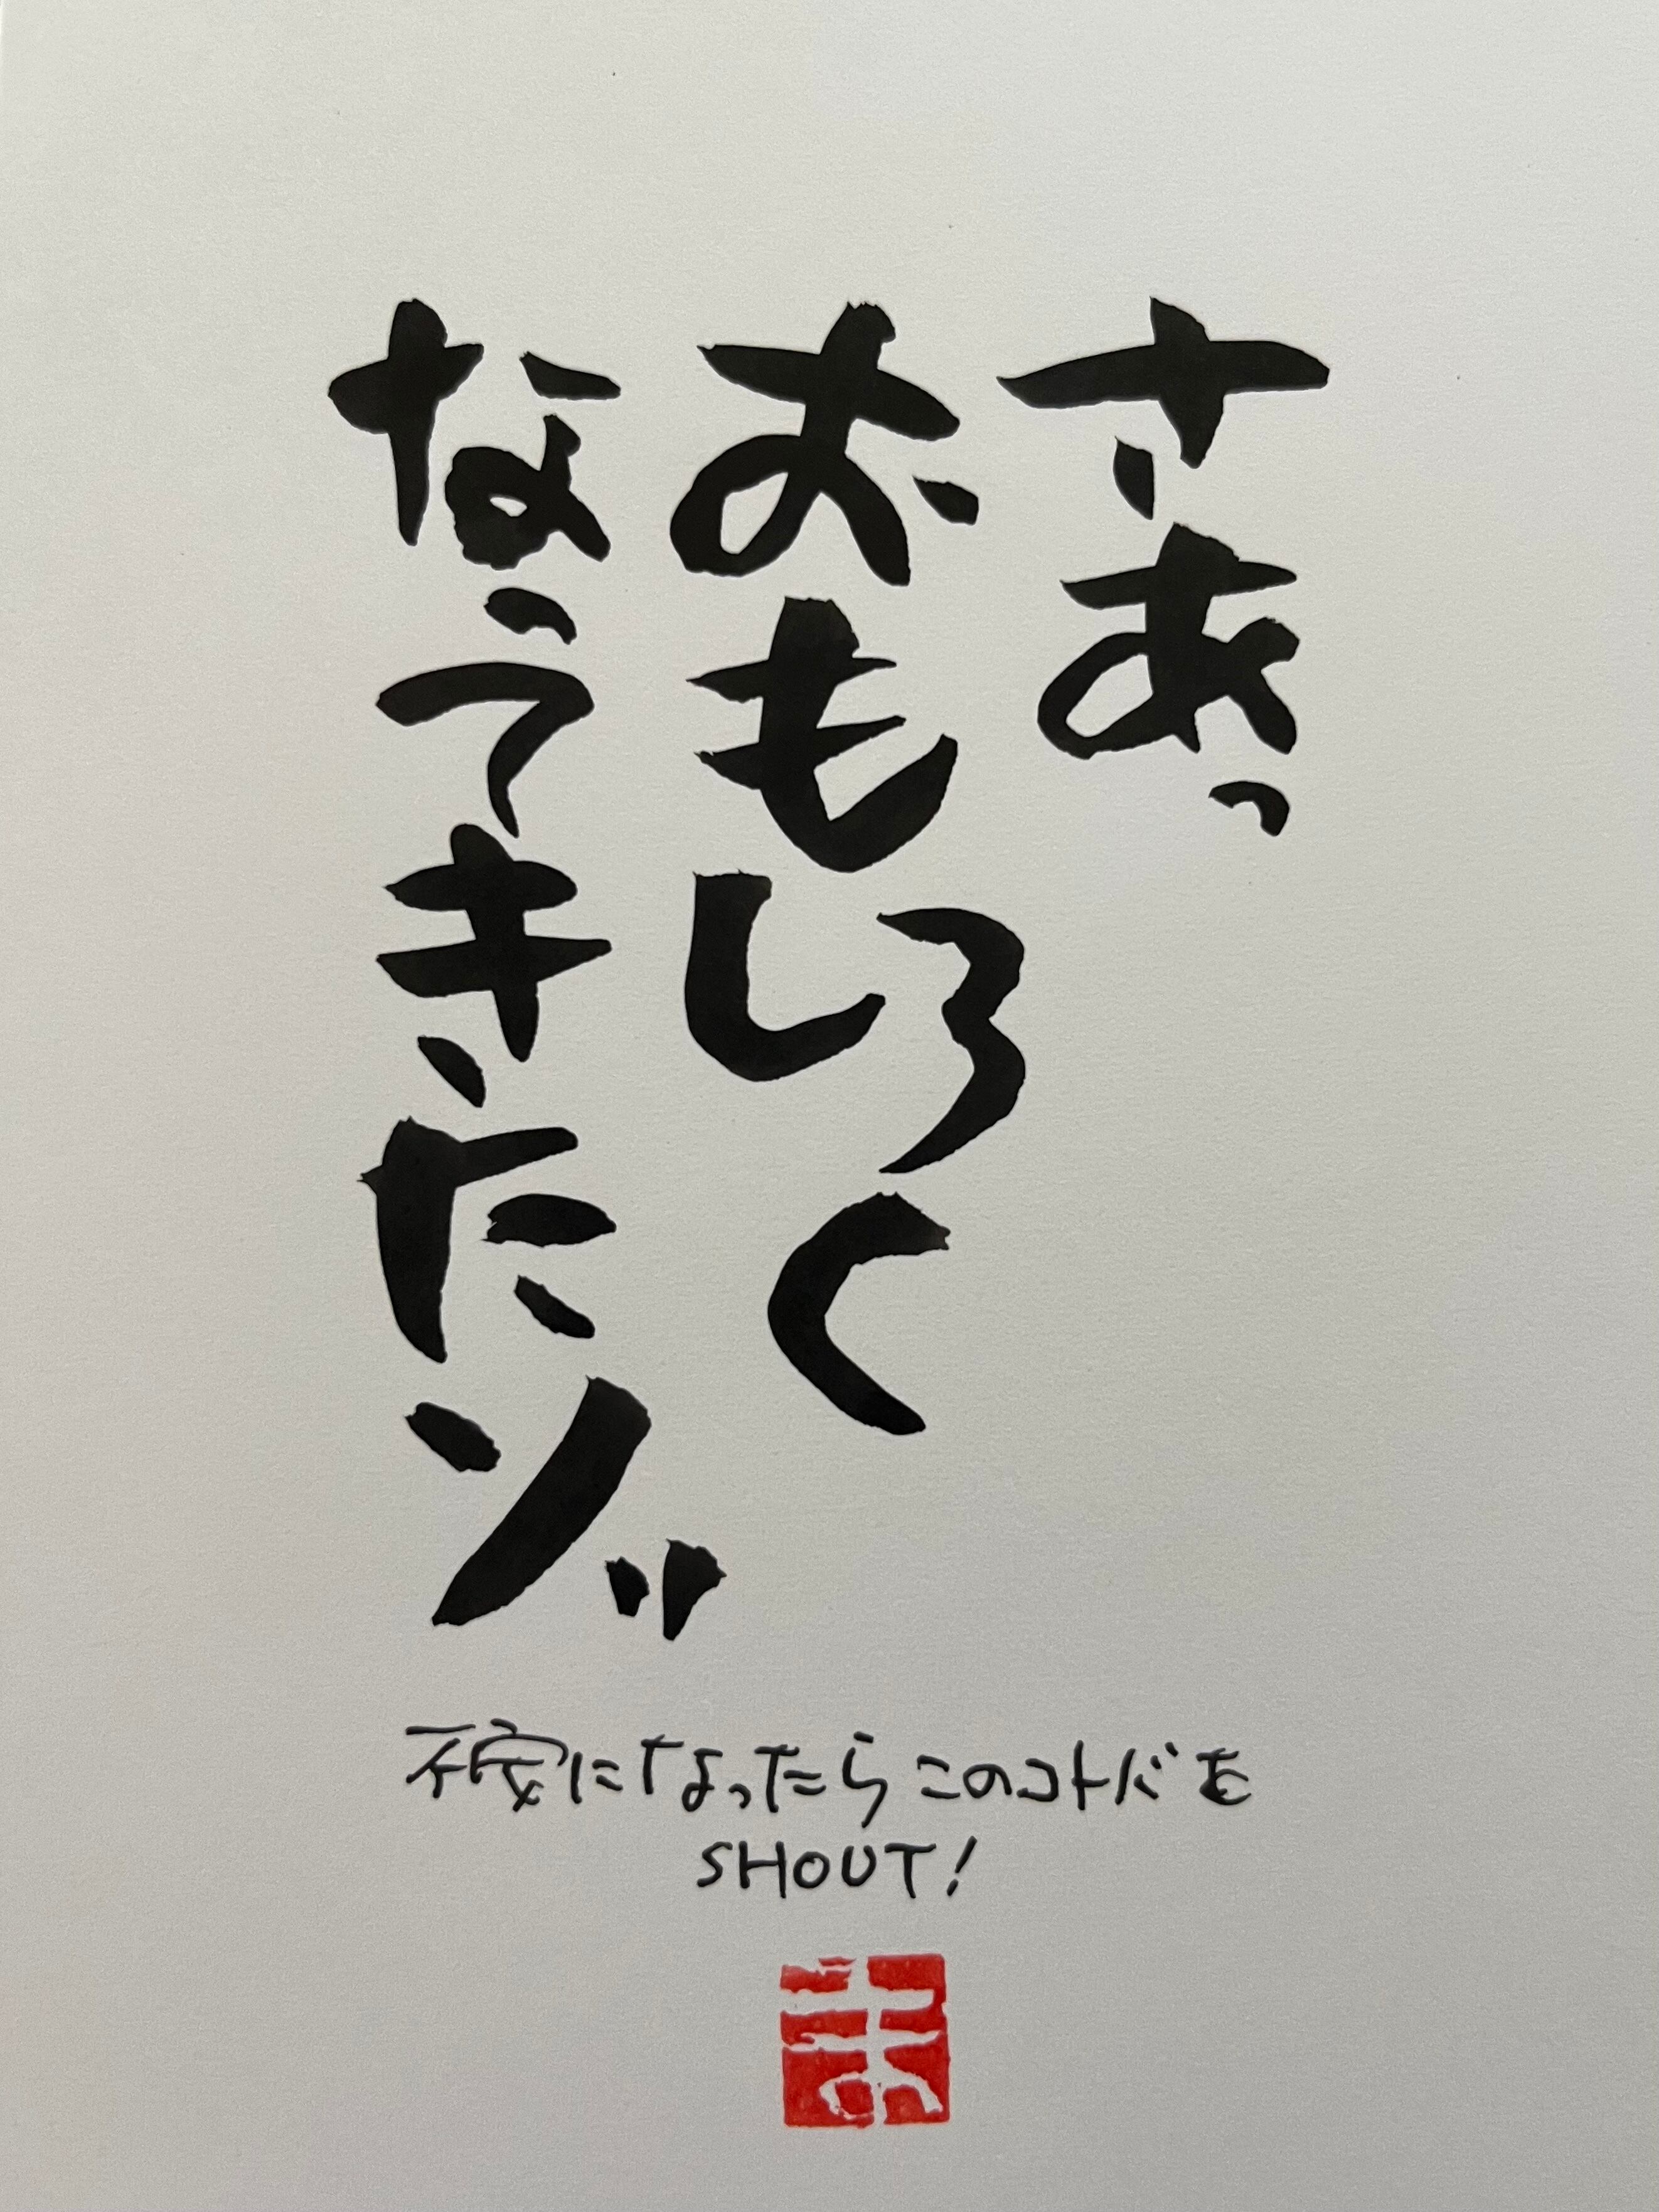 さあっ
おもしろく
なってきたゾ
不安になったらこのコトバを
SHOUT!
ま